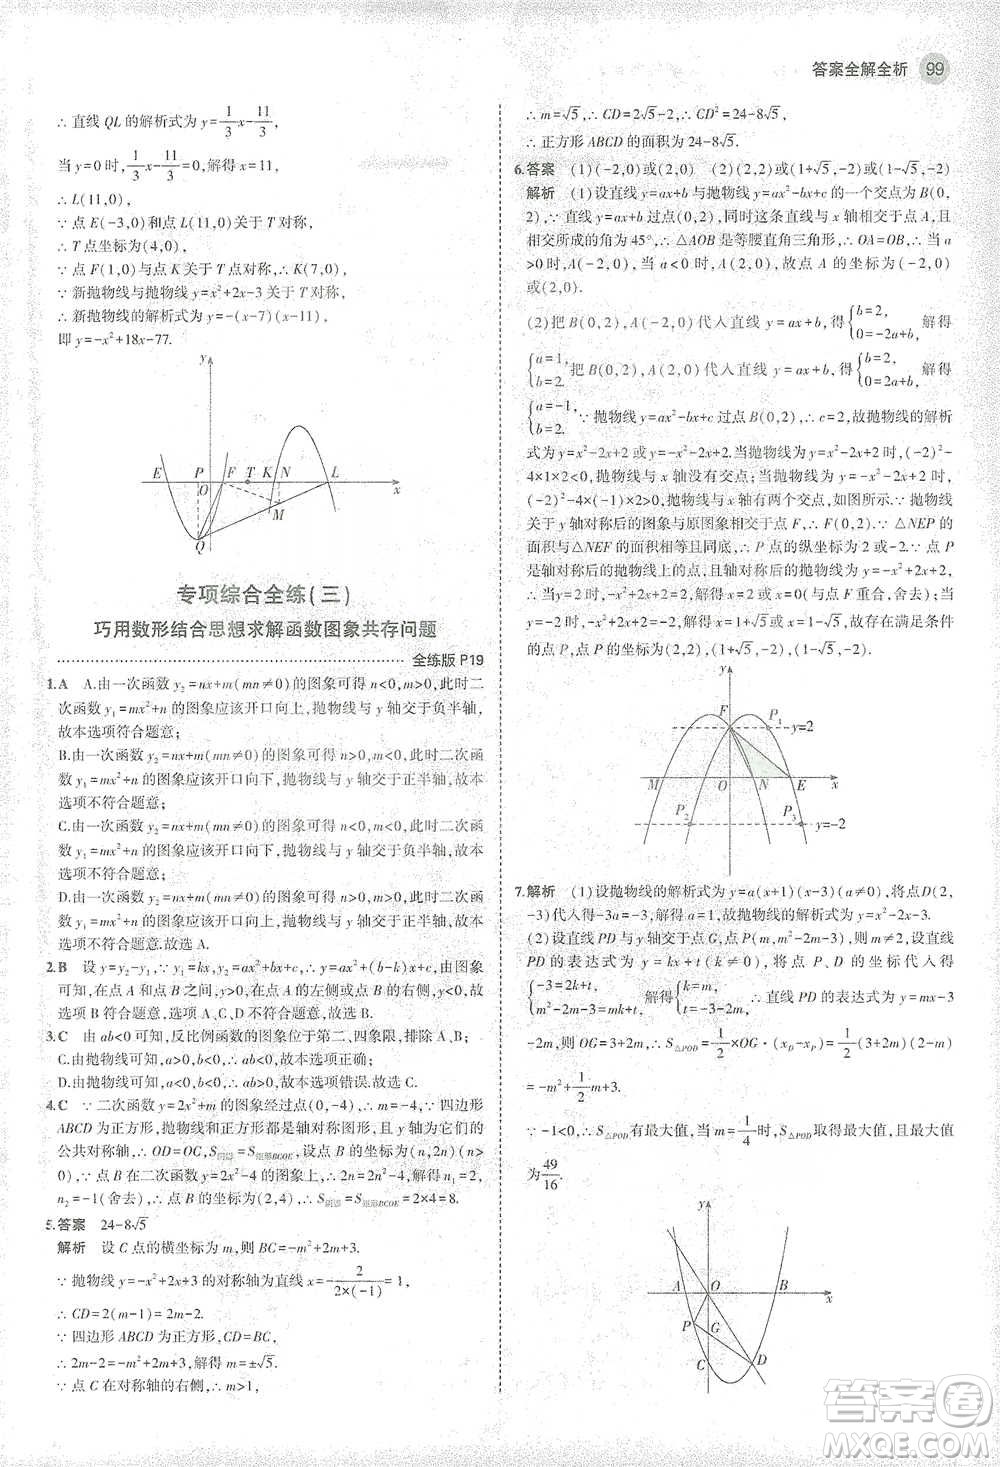 答案全解全析 99
∴ 直线 QL 的解析式为 y=1/3x-11/3,
当 y=0 时,1/3x-11/3=0,解得 x=11,
∴ L(11,0),
∵ 点 E(-3,0)和点 L(11,0)关于 T 对称,
∴ T 点坐标为(4,0),
∵ 点 F(1,0)与点 K 关于 T 点对称,∴ K(7,0),
∵ 新抛物线与抛物线 y=x²+2x-3 关于 T 对称,
∴ 新抛物线的解析式为 y=-(x-7)(x-11),
即 y=-x²+18x-77.
y
E P O F T K N L x
M
Q
专项综合全练(三)
巧用数形结合思想求解函数图象共存问题
全练版 P19
1.A A.由一次函数 y₂=nx+m(mn≠0)的图象可得 n<0,m>0,此时二
次函数 y₁=mx²+n 的图象应该开口向上,抛物线与 y 轴交于负半轴,
故本选项符合题意;
B.由一次函数 y₂=nx+m(mn≠0)的图象可得 n>0,m<0,此时二次函
数 y₁=mx²+n 的图象应该开口向下,抛物线与 y 轴交于正半轴,故本
选项不符合题意;
C.由一次函数 y₂=nx+m(mn≠0)的图象可得 n>0,m<0,此时二次函
数 y₁=mx²+n 的图象应该开口向下,抛物线与 y 轴交于正半轴,故本
选项不符合题意;
D.由一次函数 y₂=nx+m(mn≠0)的图象可得 n<0,m>0,此时二次函
数 y₁=mx²+n 的图象应该开口向上,抛物线与 y 轴交于负半轴,故本
选项不符合题意.故选 A.
2.B 设 y=y₂-y₁,∵ y₁=kx,y₂=ax²+bx+c,∴ y=ax²+(b-k)x+c,由题
图象可知,在点 A 和点 B 之间,y>0,在点 A 的左侧或点 B 的右侧,
y<0,故选项 B 符合题意,选项 A、C、D 不符合题意.故选 B.
3.C 由 ab<0 可知,反比例函数的图象位于第二、四象限,排除 A、B;
C.由直线可知,a>0,b<0,∴ ab<0,故本选项正确;
D.由直线可知,a<0,b<0,∴ ab>0,故本选项错误.故选 C.
4.C ∵ 二次函数 y=2x²+m 的图象经过点(0,-4),∴ m=-4,∵ 四边形
ABCD 为正方形,抛物线和正方形都是轴对称图形,且 y 轴为它们的
公共对称轴,∴ OD=OC,S阴影=S矩形BCOE,设点 B 的坐标为(n,2n)(n>
0),∵ 点 B 在二次函数 y=2x²-4 的图象上,∴ 2n=2n²-4,解得 n₁=2,
n₂=-1(舍去),∴ 点 B 的坐标为(2,4),∴ S阴影=S矩形BCOE=2×4=8.
5.答案 24-8√5
解析 设 C 点的横坐标为 m,则 BC=-m²+2m+3,
∵ 抛物线 y=-x²+2x+3 的对称轴为直线 x=-2/(2×(-1))=1,
∴ CD=2(m-1)=2m-2.
∵ 四边形 ABCD 为正方形,CD=BC,
∴ 2m-2=-m²+2m+3,解得 m=±√5.
∵ 点 C 在对称轴的右侧,∴ m>1,
∴ m=√5,∴ CD=2√5-2,∴ CD²=24-8√5,
∴ 正方形 ABCD 的面积为 24-8√5.
6.答案 (1)(-2,0)或(2,0) (2)(2,2)或(1+√5,-2)或(1-√5,-2)
解析 (1)设直线 y=ax+b 与抛物线 y=ax²-bx+c 的一个交点为 B(0,
2),∵ 直线 y=ax+b 过点(0,2),同时这条直线与 x 轴交于点 A,且
相交所成的角为 45°,∴ △AOB 是等腰直角三角形,∴ OA=OB,当 a
>0时,A(-2,0),当 a<0 时,A(2,0),故点 A 的坐标为(-2,0)
或(2,0).
(2)把 B(0,2),A(-2,0)代入直线 y=ax+b,得{b=2, 0=-2a+b,解得
{a=1, b=2.把 B(0,2),A(2,0)代入直线 y=ax+b,得{b=2, 0=2a+b,解得
{a=-1, b=2.∵ 抛物线 y=ax²-bx+c 过点 B(0,2),∴ c=2,故抛物线的解析
式为 y=x²-2x+2 或 y=-x²-2x+2.当抛物线为 y=x²-2x+2 时,(-2)²-
4×1×2<0,抛物线与 x 轴没有交点;当抛物线为 y=-x²-2x+2 时,
(-2)²-4×(-1)×2>0,抛物线与 x 轴有两个交点,如图所示.∵ 抛物线
关于 y 轴对称后的图象与原图象交于点 F,∴ F(0,2).∵ △NEP 的
面积与△NEF 的面积相等且同底,∴ P 点的纵坐标为 2 或-2.∵ 点 P
是轴对称后的抛物线上的点,∴ 抛物线的解析式为 y=-x²+2x+2.当 y
=2 时,-x²+2x+2=2,解得 x=2 或 x=0(与点 F 重合,舍去);当 y=-2
时,-x²+2x+2=-2,解得 x=1+√5或 x=1-√5.故存在满足条件的
点 P,点 P 的坐标为(2,2)或(1+√5,-2)或(1-√5,-2).
y
F P₁ y=2
M O N E x
P₂ P₃ y=-2
7.解析 (1)设抛物线的解析式为 y=a(x+1)(x-3)(a≠0),将点D(2,
-3)代入得-3a=-3,解得 a=1,故抛物线的解析式为 y=x²-2x-3.
(2)设直线 PD 与 y 轴交于点 G,点 P(m,m²-2m-3),则 m<0,设直线
PD 的表达式为 y=kx+t(k≠0),将点 P、D 的坐标代入得
{-3=2k+t, m²-2m-3=km+t,解得{k=m, t=-3-2m,∴ 直线 PD 的表达式为 y=mx-3
-2m,则 OG=3+2m,∴ S△POD=1/2×OG·(xD-xP)=1/2(3+2m)(2-m)
=-m²+1/2m+3.
∵ -1<0,∴ S△POD有最大值,当 m=1/4时,S△POD取得最大值,其最大值
为49/16.
y
A O B x
P G
C D
答案圈
MXQE.COM